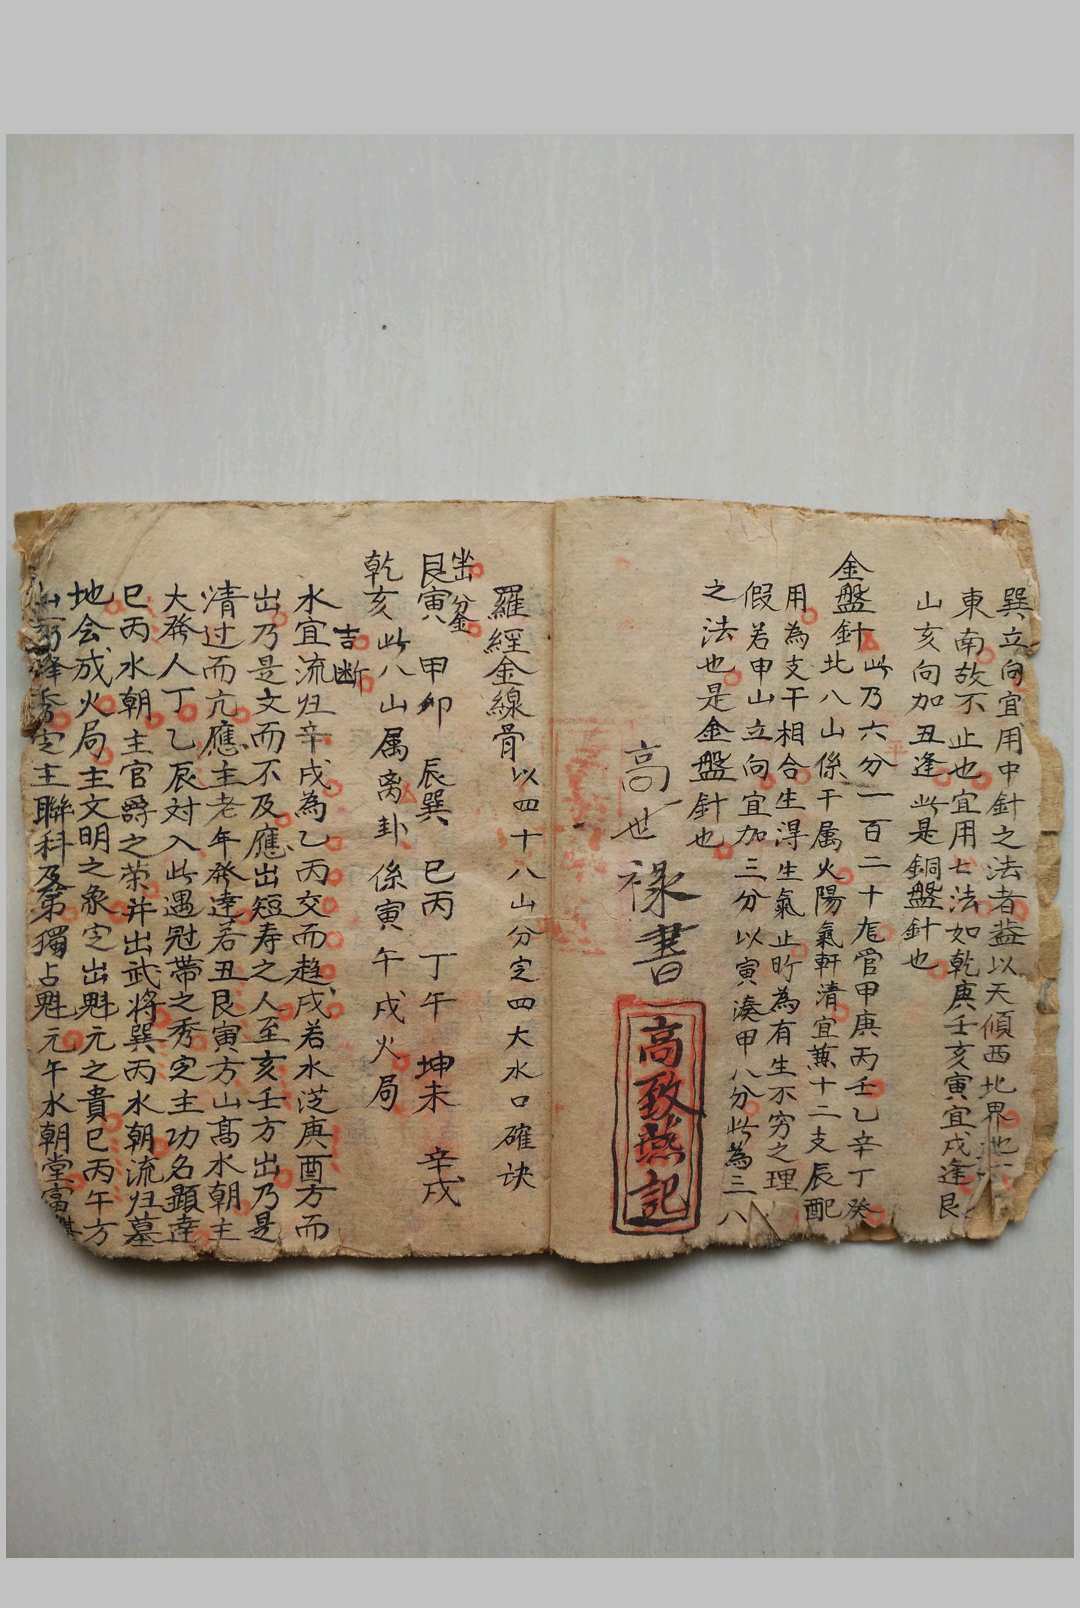 巽立向宜用中針之法者葢以天傾西北界
東南故不止也宜用七法如乾庚壬亥寅宜戌逢艮
山亥向加丑逢此是銅盤針也
金盤針此乃六分一百二十尨管甲庚丙壬乙辛丁癸
北八山係干属火陽氣軒清宜薫十二支辰配
用為支干相合生淂生氣止昕為有生不穷之理
假若申山立向宜加三分以寅湊甲八分此為三八
之法也是金盤針也
高世祿書
高致燕記
羅經金線骨以四十八山分定四大水口確诀
坐釜
艮寅 甲卯 辰巽 巳丙 丁午 坤未 辛戌
乾亥 此八山属离卦係寅午戌火局
吉断
水宜流归辛戌為乙丙交而趋戌若水泛庚酉方而
出乃是文而不及應出短寿之人至亥壬方出乃是
清过而亢應主老年癸達若丑艮寅方山高水朝主
大發人丁乙辰对入此遇冠帶之秀定主功名顕達
巳丙水朝主官爵之荣并出武将巽丙水朝流归墓
地会成火局主文明之象定出魁元之貴巳丙午方
峰秀定主聯科及第獨占魁元午水朝堂富